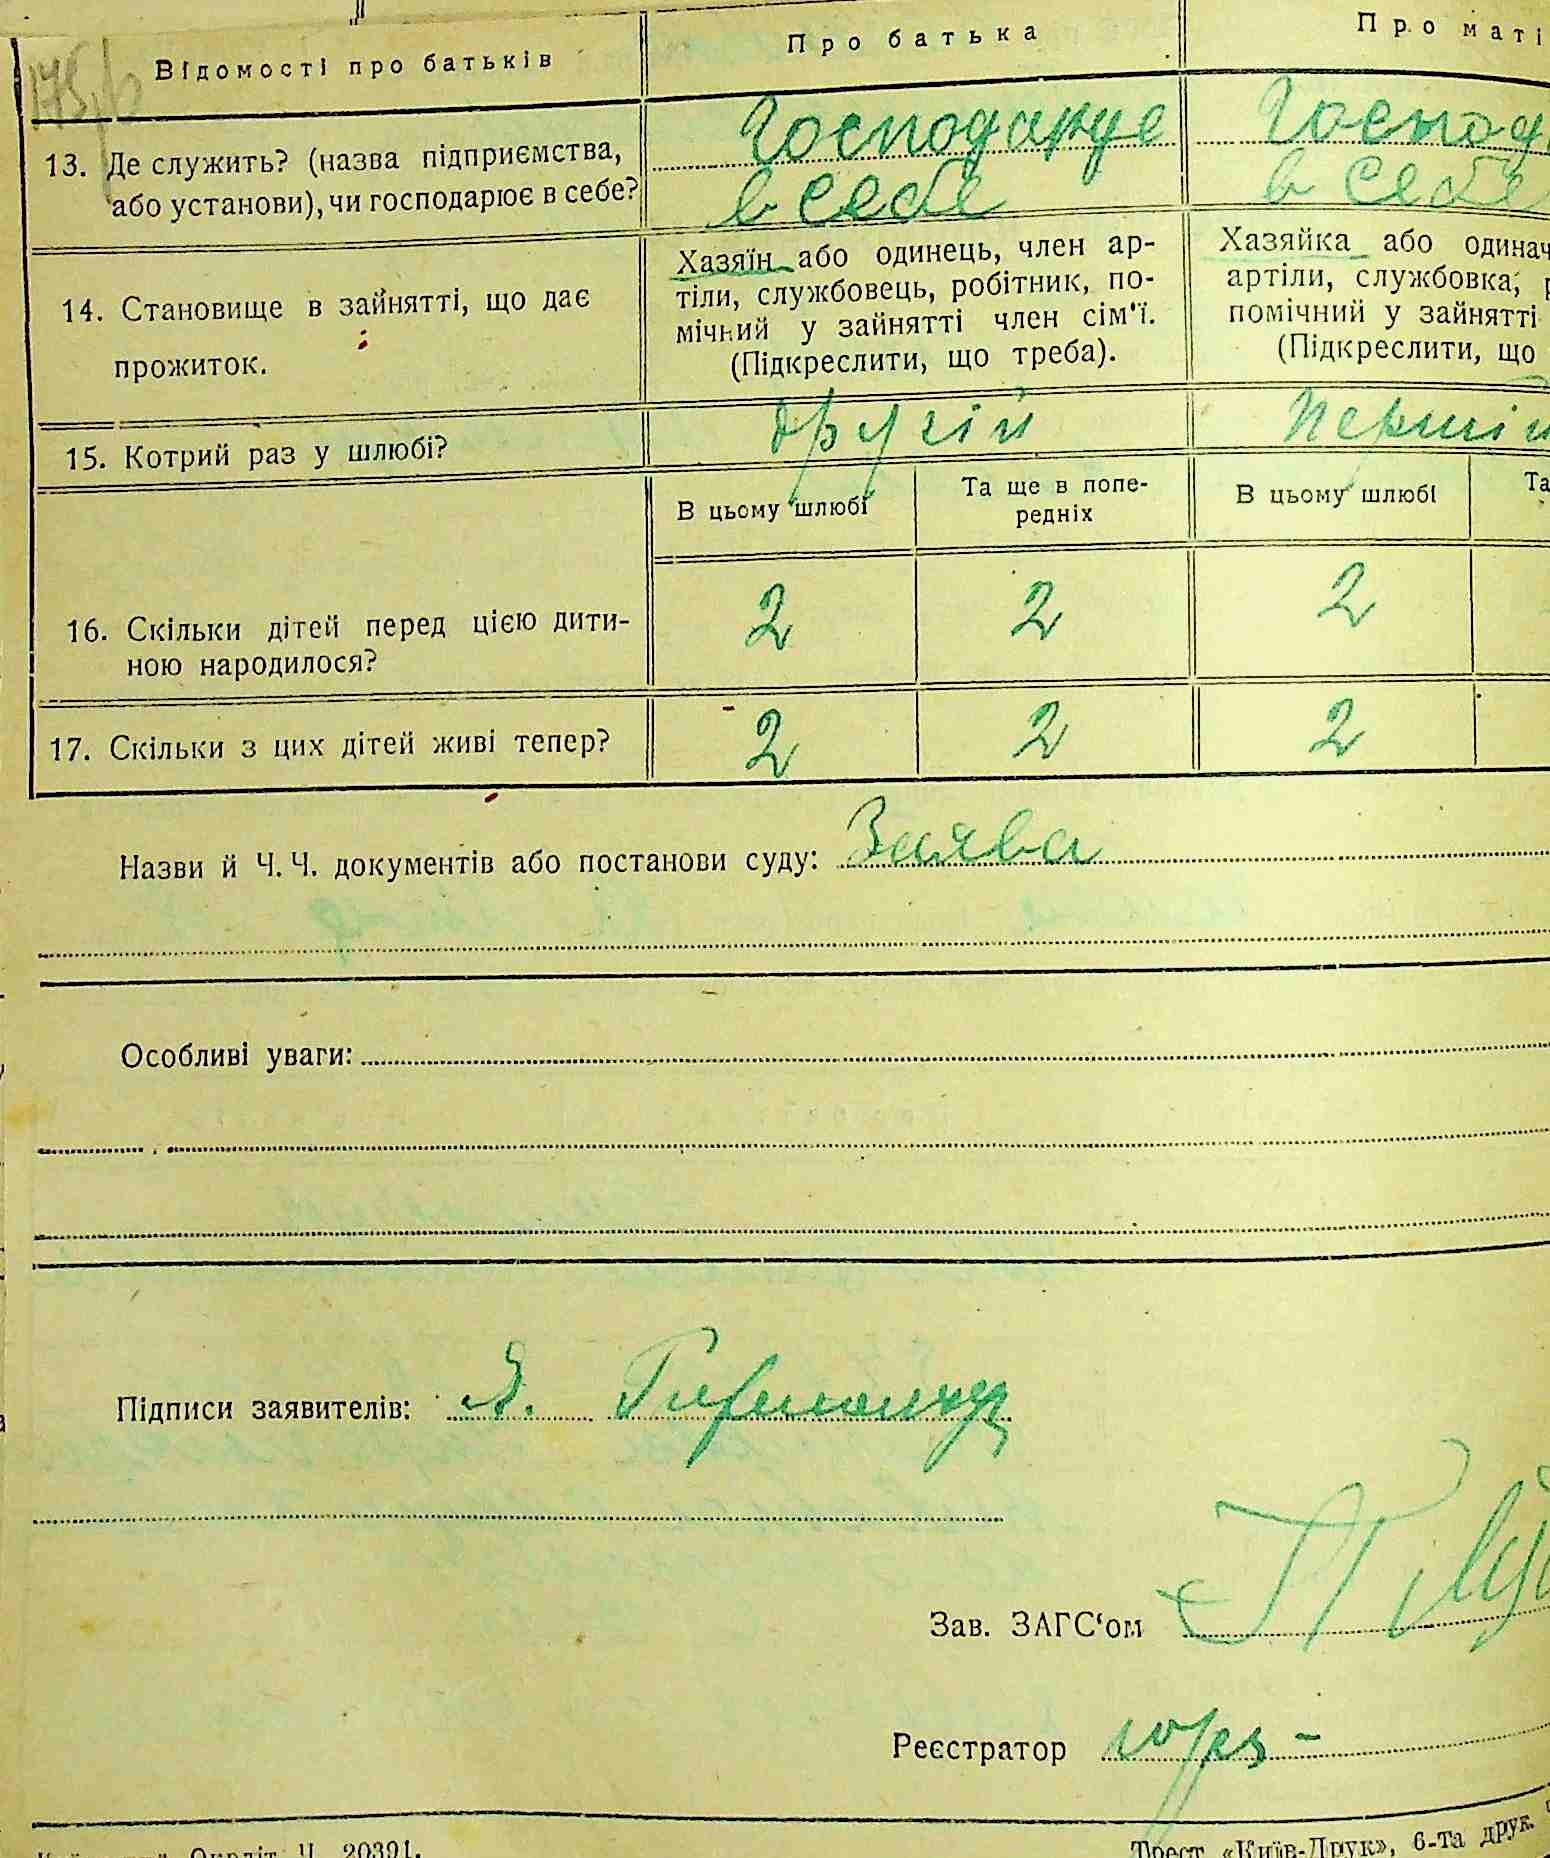 175
Відомості про батьків
Про батька
Про маті
13. Де служить? (назва підприємства,
або установи), чи господарює в себе?
Господарує
в себе
Господ
в себе
14. Становище в зайнятті, що дає
прожиток.
Хазяїн або одинець, член ар-
тіли, службовець, робітник, по-
мічний у зайнятті член сім'ї.
(Підкреслити, що треба).
Хазяйка або одинач
артіли, службовка, р
помічний у зайнятті
(Підкреслити, що
15. Котрий раз у шлюбі?
другій
першій
В цьому шлюбі
Та ще в попе-
редніх
В цьому шлюбі
Та
16. Скільки дітей перед цією дити-
ною народилося?
2
2
2
17. Скільки з цих дітей живі тепер?
2
2
2
Назви й Ч. Ч. документів або постанови суду: Заява
Особливі уваги:
Підписи заявителів: Я.
Зав. ЗАГС'ом
Реєстратор
Окрліт Ч. 20391.
Трест «Київ-Друк», 6-та друк.